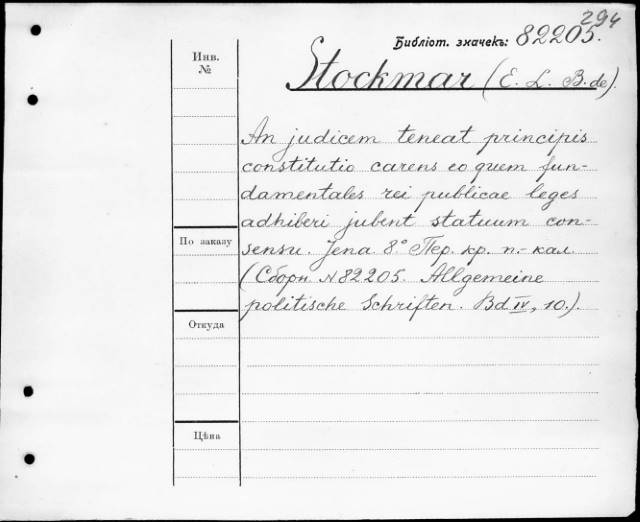 294
Библіот. значекъ: 82205.
Инв.
№
Stockmar (E. L. B. de).
An judicem teneat principis
constitutio carens eo quem fun-
damentales rei publicae leges
adhiberi jubent statuum con-
По заказу
sensu. Jena. 8.° Пер. кр. п.-кал.
(Сборн. N 82205. Allgemeine
politische Schriften. Bd IV, 10.).
Откуда
Цѣна